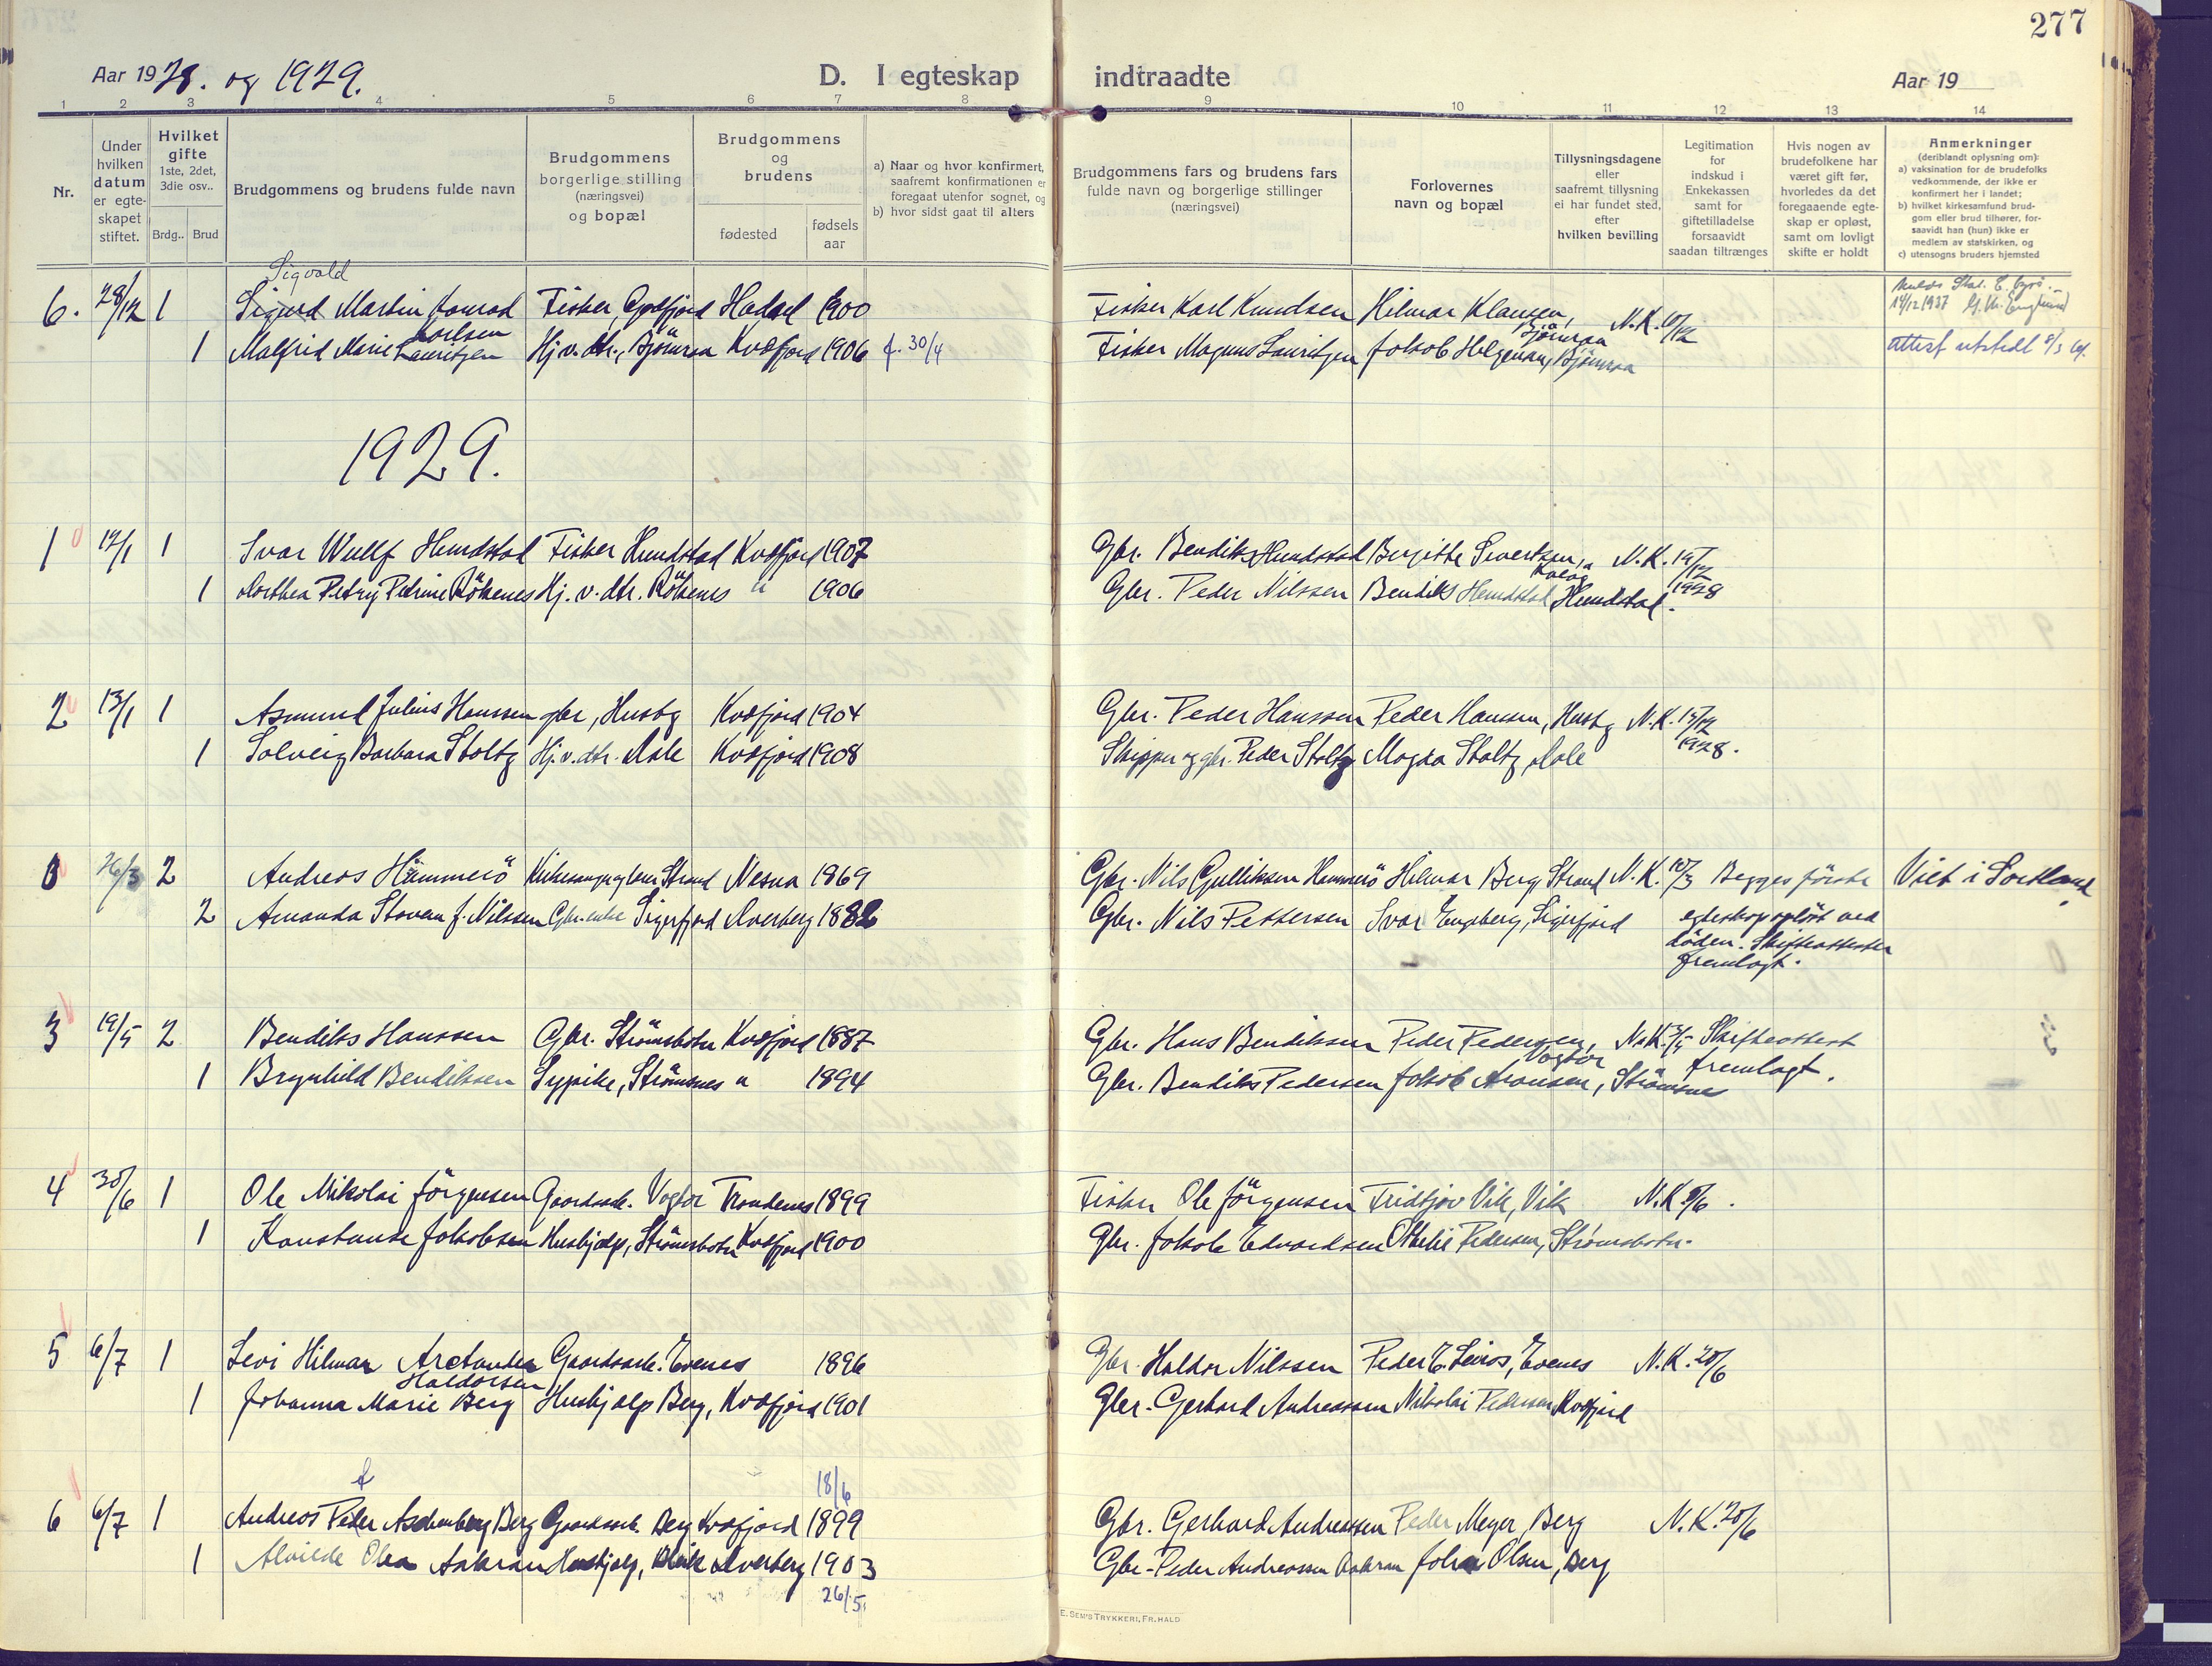 277
Aar 1928. og 1929.
D. I egteskap indtraadte
Aar 19
1 2 3 4 5 6 7 8 9 10 11 12 13 14
Nr.
Under hvilken datum er egte- skapet stiftet.
Hvilket gifte
1ste, 2det, 3die osv..
Brdg.. Brud
Brudgommens og brudens fulde navn
Brudgommens borgerlige stilling (næringsvei) og bopæl
Brudgommens og brudens
fødested
fødsels aar
a) Naar og hvor konfirmert, saafremt konfirmationen er foregaat utenfor sognet, og
b) hvor sidst gaat til alters
Brudgommens fars og brudens fars fulde navn og borgerlige stillinger (næringsvei)
Forlovernes navn og bopæl
Tillysningsdagene eller saafremt tillysning ei har fundet sted, efter hvilken bevilling
Legitimation for indskud i Enkekassen samt for giftetilladelse forsaavidt saadan tiltrænges
Hvis nogen av brudefolkene har været gift før, hvorledes da det foregaaende egte- skap er opløst, samt om lovligt skifte er holdt
Anmerkninger
(deriblandt oplysning om):
a) vaksination for de brudefolks vedkommende, der ikke er konfirmert her i landet;
b) hvilket kirkesamfund brud- gom eller brud tilhører, for- saavidt han (hun) ikke er medlem av statskirken, og
c) utensogns bruders hjemsted
Sigvald
6. 28/12 1 Sigurd Martin Konrad Fisker, Godfjord Hadsel 1900 Fisker Karl Knudsen Hilmar Klausen, Bjömraa N.K. 10/12
14/12 1937
Karlsen
1 Malfrid Marie Lauritzen Hj.v. dtr., Bjömraa Kvæfjord 1906 f. 30/4 Fisker Magnus Lauritzen Jakob Helgesen, Bjömraa Attest utstedt
1929.
1 12/1 1 Ivar Wulff Hundstad Fisker Hundstad Kvæfjord 1907 Gbr. Bendiks Hundstad Bergitte Sivertsen, N.K. 19/12 1928
1 Dorthea Petry Petrine Rökenes Hj. v. dtr. Rökenes " 1906 Gbr. Peder Nilssen Bendiks Hundstad Hundstad.
2 13/1 1 Asmund Julius Hanssen gbr, Husby Kvæfjord 1904 Gbr. Peder Hanssen Peder Hansen, Husby N.K. 15/12 1928.
1 Solveig Barbara Stoltz Hj.v.dtr. Aale Kvæfjord 1908 Skipper og gbr. Peder Stoltz Magda Stoltz, Aale
0 26/3 2 Andreas Hammerö Kirkesanger Strand Nesna 1869 Gbr. Nils Gulliksen Hammerö Hilmar Berg Strand N.K. 10/3 Begges förste Viet i Sortland.
2 Amanda Stovan f. Nilssen Gbr.enke Sigerfjord Averberg 1882 Gbr. Nils Pettersen Ivar Engeberg, Sigerfjord egteskap oplöst ved döden. Skifteattester fremlagt.
3 19/5 2 Bendiks Hanssen Gbr. Strömsbotn Kvæfjord 1887 Gbr. Hans Bendiksen Peder Pedersen, Vogtor N.K. 3/5 Skifteattest fremlagt.
1 Brynhild Bendiksen Sypike, Strömsnes " 1894 Gbr. Bendiks Pedersen Jakob Aronsen, Strömsnes
4 30/6 1 Ole Mikolai Jörgensen Gaardsarb. Vogtor Trondenes 1899 Fisker Ole Jörgensen Fridtjov Vik, Vik N.K. 9/6.
1 Konstanse Jakobsen Hushjelp, Strömsbotn Kvæfjord 1900 Gbr. Jakob Edvardsen Othelie Pedersen, Strömsbotn.
5 6/7 1 Levi Hilmar Arctander Haldorsen Gaardsarb. Evenes 1896 Gbr. Haldor Nilssen Peder E. Leiros, Evenes N.K. 20/6
1 Johanna Marie Berg Hushjelp Berg, Kvæfjord 1901 Gbr. Gerhard Andreassen Nikolai Pedersen Kvæfjord
18/6
6 6/7 1 Andreas Peder Aschenberg Berg Gaardsarb. Berg Kvæfjord 1899 Gbr. Gerhard Andreassen Peder Meyer, Berg N.K. 20/6
1 Alvilde Olea Aakran Hushjelp, Averberg 1903 Gbr. Peder Andreassen Aakran Johan Olsen, Berg
26/5
E. SEM'S TRYKKERI, FR.HALD